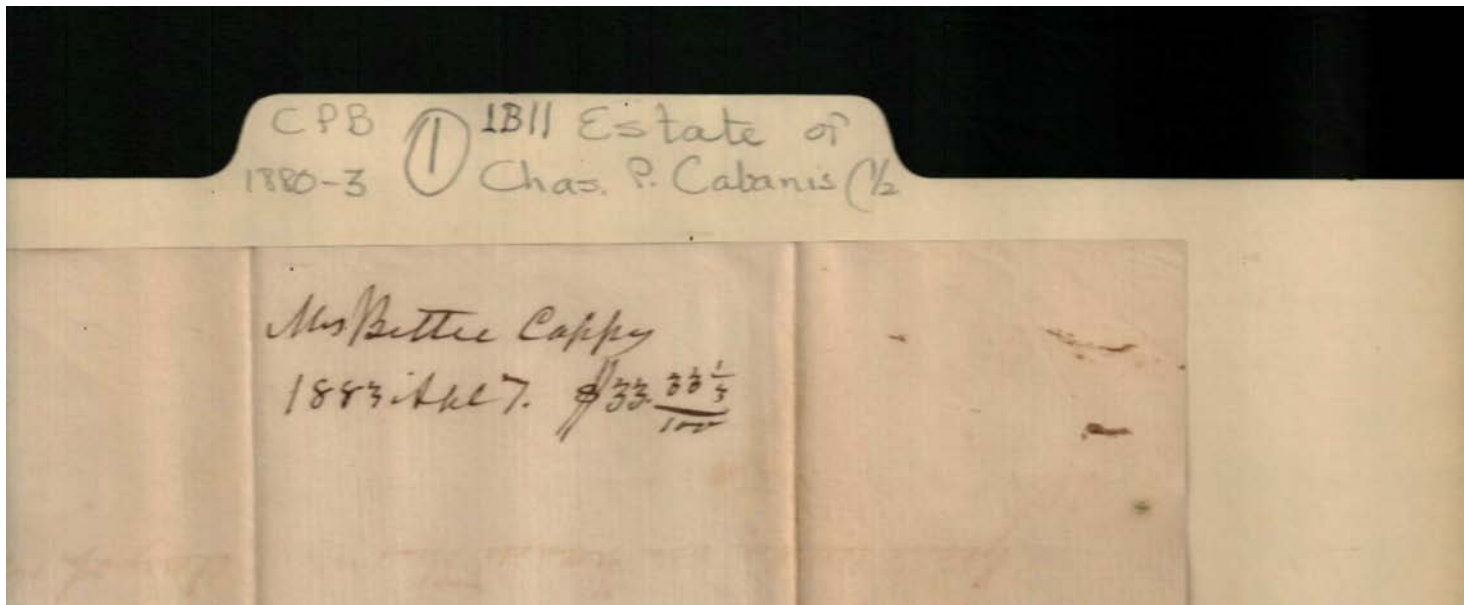 CPB ① 1B11 Estate of
1880-3 Chas. P. Cabanis (1/2
Mrs Bettie Cappy
1883 Apl 7. $33. 33 1/3 / 100